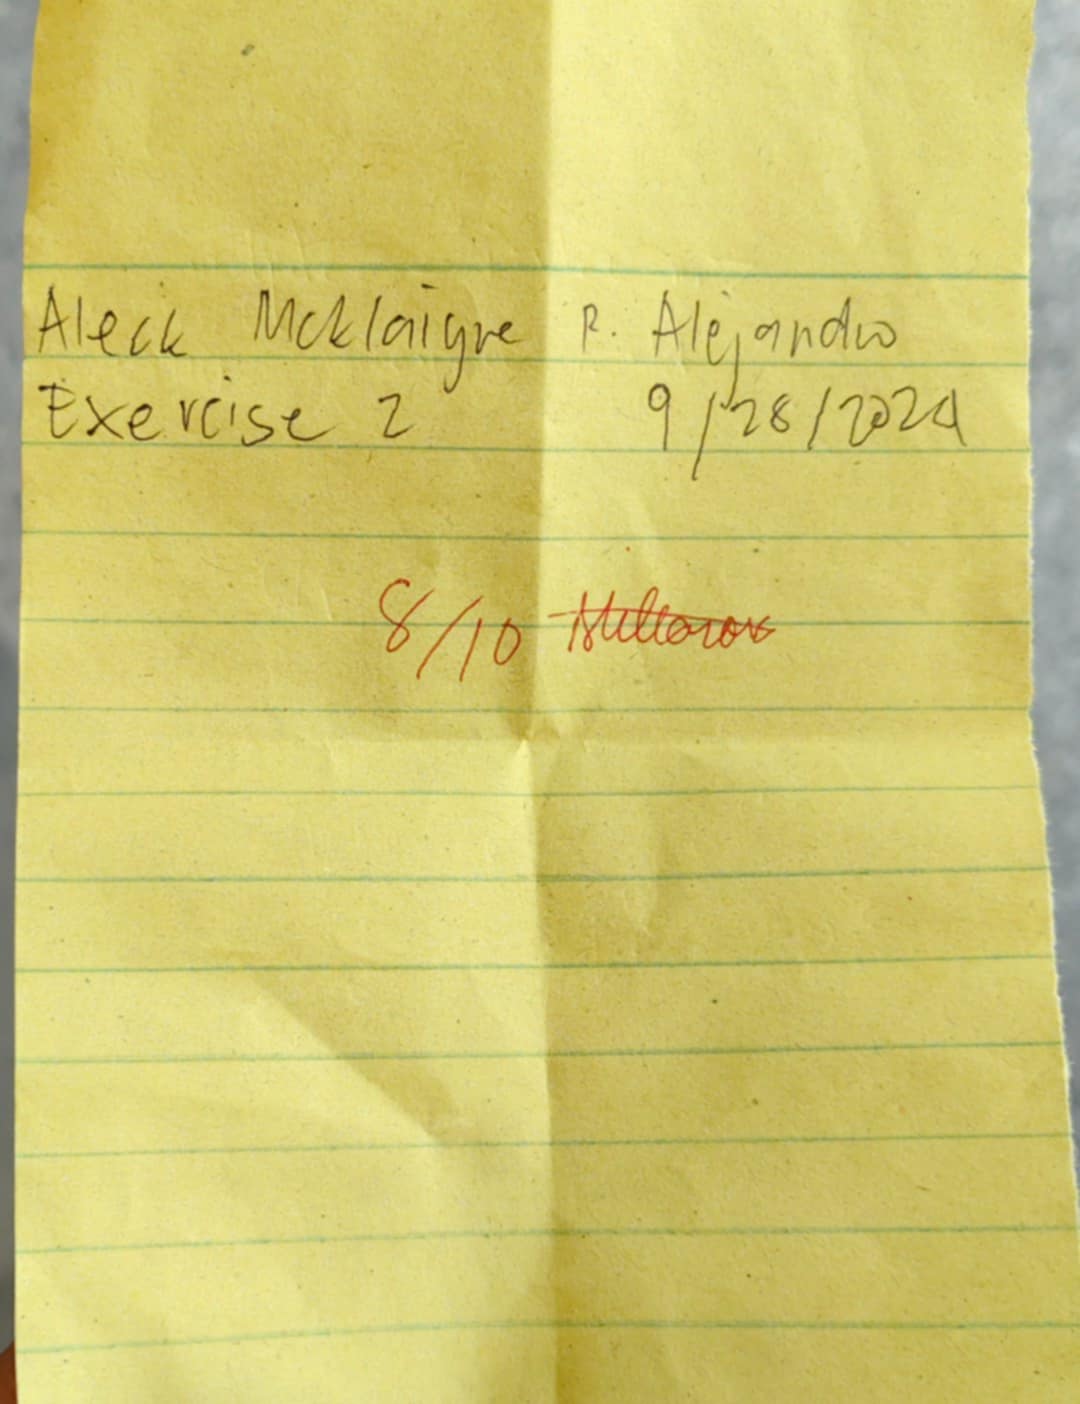 Aleck McKlaigne R. Alejandro
Exercise 2 9/28/2024
8/10